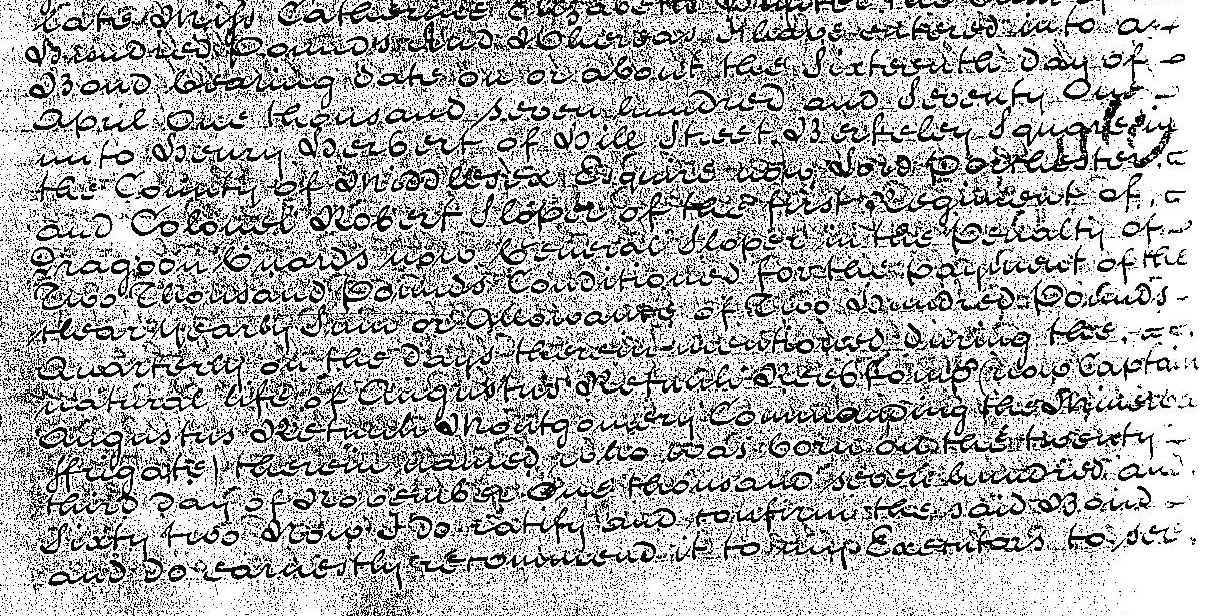 late Miss Catherine Elizabeth Hunter the Sum of
Hundred Pounds And Whereas I have entered into a
Bond bearing date on or about the Sixteenth day of
April One thousand seven hundred and Seventy One
unto Henry Herbert of Hill Street Berkeley Square in
the County of Middlesex Esquire now Lord Porchester
and Colonel Robert Sloper of the first Regiment of
Dragoon Guards now General Sloper in the Penalty of
Two Thousand Pounds Conditioned for the payment of the
clear yearly Sum or Allowance of Two Hundred Pounds
Quarterly on the days therein mentioned during the
natural life of Augustus Retnuh Reebkomp (now Captain
Augustus Retnuh Montgomery Commanding the Minerva
ffrigate) therein named who was born on the twenty
third day of November One thousand seven hundred and
Sixty two Now I do ratify and confirm the said Bond
and do earnestly recommend it to my Executors to see